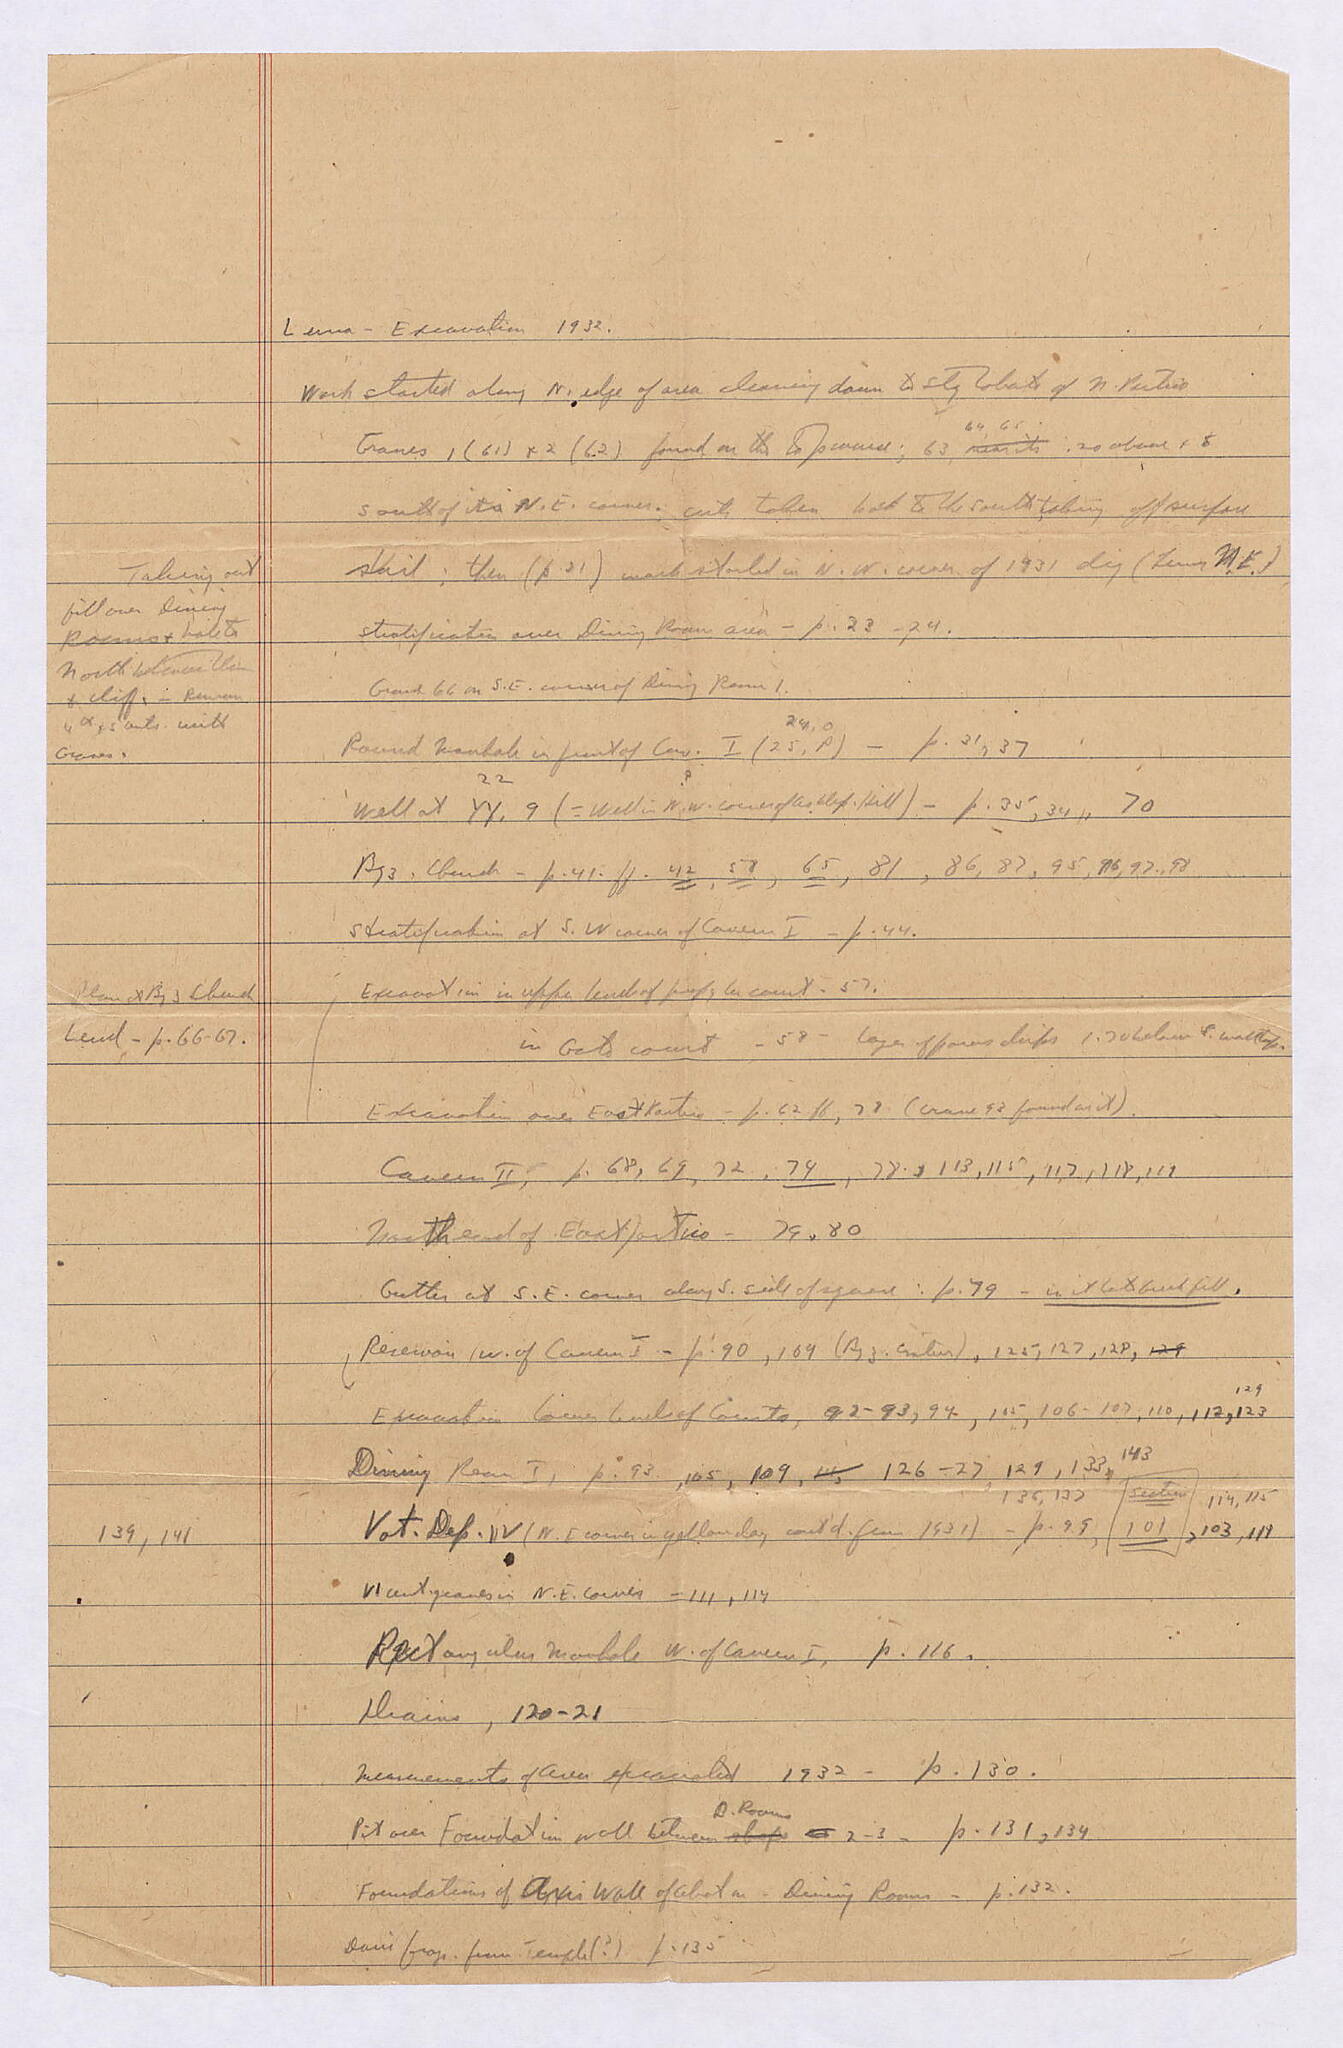 Lerna - Excavation 1932.
Work started along N. edge of area cleaning down to stylobate of N. Portico
64, 65.
Graves 1 (61) + 2 (62) found on the top course; 63 no above + to
south of its N.E. corner. cuts taken back to the south taking off surface
Taking out
soil; then (p. 21) work started in N.W. corner of 1931 dig (Lerna N.E.)
fill over Dining
Rooms +
stratification over Dining Room area - p. 23 - 24.
North between them
+ cliff. -
Grave 66 on S.E. corner of Dining Room 1.
cuts with
24, 0
Graves.
Round Manhole in front of Cav. I (25, P) - p. 31, 37
22 ?
Well at YY, 9 (= Well in N.W. corner of Asklep. Hill) - p. 35, 34, 70
Byz. Church - p. 41. ff. 42, 58, 65, 81, 86, 87, 95, 96, 97, 98
Stratification at S.W corner of Cavern I - p. 44.
Plan of Byz Church
Excavation in upper level of court - 57.
Level - p. 66-67.
in Gate court - 58 - layer of poros chips 1.70 below wall top.
Excavation over East Portico - p. 62 ff, 78 (Grave 93 found in it).
Cavern II, p. 68, 69, 72, 74, 78. 113, 115, 117, 118, 119
North end of East Portico - 79, 80
Gutter at S.E. corner along S. side of square: p. 79 - fill.
Reservoir W. of Cavern I - p. 90, 104 (Byz. cistern), 125, 127, 128, 129
129
Excavation lower levels of Courts, 92-93, 94, 105, 106-107, 110, 112, 123
143
Dining Room I, p. 93, 105, 109, 126-27, 129, 133,
136, 137 section 114, 115
139, 141
Vot. Dep. IV (N.E corner in yellow clay cont'd. from 1931) - p. 99, 101, 103, 119
VI cent. graves in N.E. corner - 111, 114
Rectangular Manhole W. of Cavern I, p. 116.
Drains, 120-21
Measurements of area excavated 1932 - p. 130.
D. Rooms
Pit over Foundation wall between 2-3 - p. 131, 134
Foundations of Axis Wall of Abaton - Dining Rooms - p. 132.
Doric frag. from Temple (?) p. 135